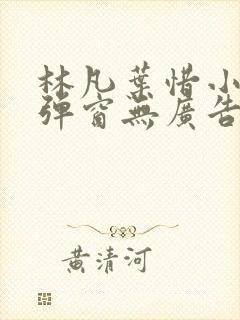 林凡葉惜小
彈窗無廣告
黃清河